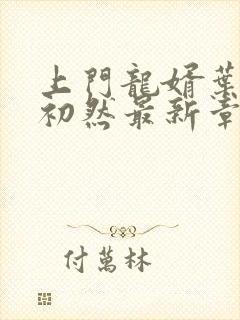 上門龍婿葉
初然最新章
付萬林